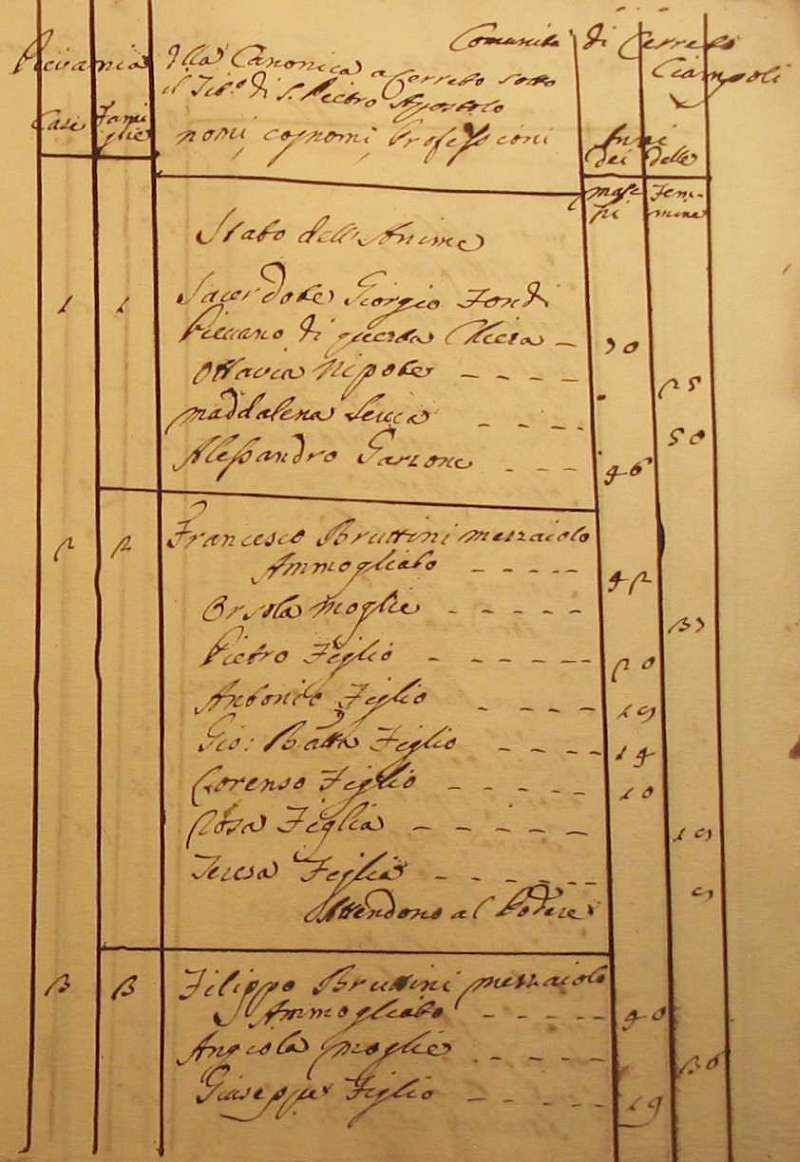 Comunità di Cerreto
Ciampoli
Pievania della Canonica a Cerreto sotto
il Tit.o di S. Pietro Apostolo
Case Fami
glie
nomi, cognomi, Professioni
Anni
dei delle
masc
hi
Fem
mine
Stato dell'Anime
1 1 Sacerdote Giorgio Fondi
Pievano di questa Chiesa 70
Ottavia Nipote 25
Maddalena Serva 50
Alessandro Garzone 46
2 2 Francesco Bruttini mezzaiolo
Ammogliato 42
Orsola moglie 37
Pietro Figlio 20
Antonio Figlio 19
Gio: Batta Figlio 14
Lorenso Figlio 10
Rosa Figlia 19
Teresa Figlia 9
Attendono al Podere
3 3 Filippo Bruttini mezzaiolo
Ammogliato 40
Angiola moglie 36
Giuseppe Figlio 19